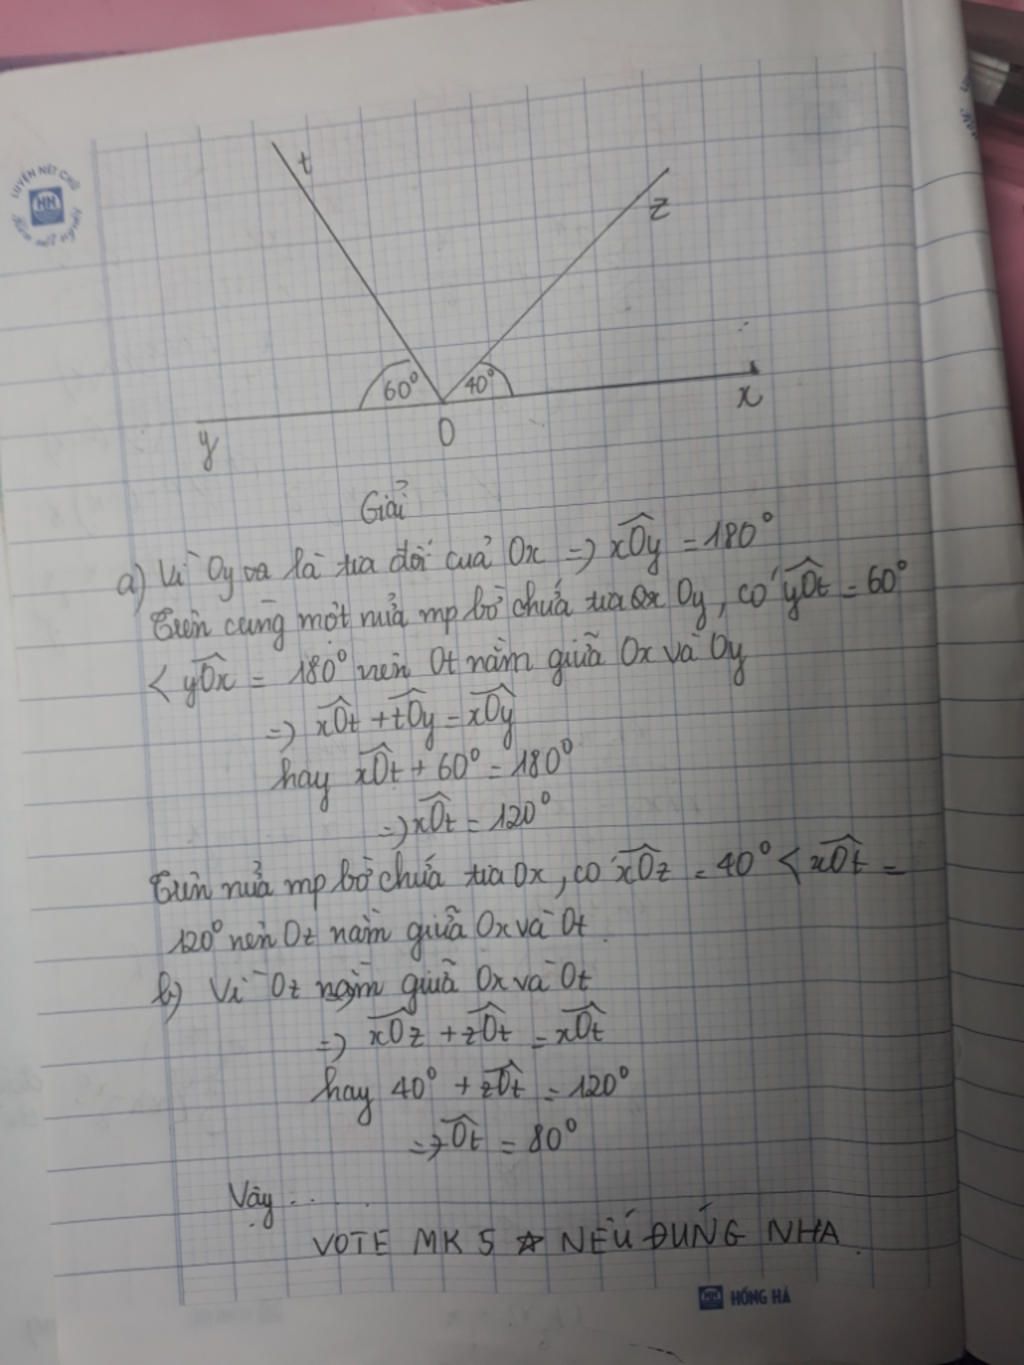 LUYỆN NÉT CHỮ
HN
Rèn nết người
t
z
60°
40°
y
O
x
Giải
a) Vì Oy va là tia đối cuả Ox => xOy = 180°
Trên cùng một nửa mp bờ chứa tia Ox Oy, có yOt = 60°
< yOx = 180° nên Ot nằm giữa Ox và Oy
=> xOt + tOy = xOy
hay xOt + 60° = 180°
=> xOt = 120°
Trên nửa mp bờ chứa tia Ox, có xOz = 40° < xOt =
120° nên Oz nằm giữa Ox và Ot.
b) Vì Oz nằm giữa Ox và Ot
=> xOz + zOt = xOt
hay 40° + zOt = 120°
=> zOt = 80°
Vậy ...
VOTE MK 5 ☆ NẾU ĐÚNG NHA.
HN HỒNG HÀ